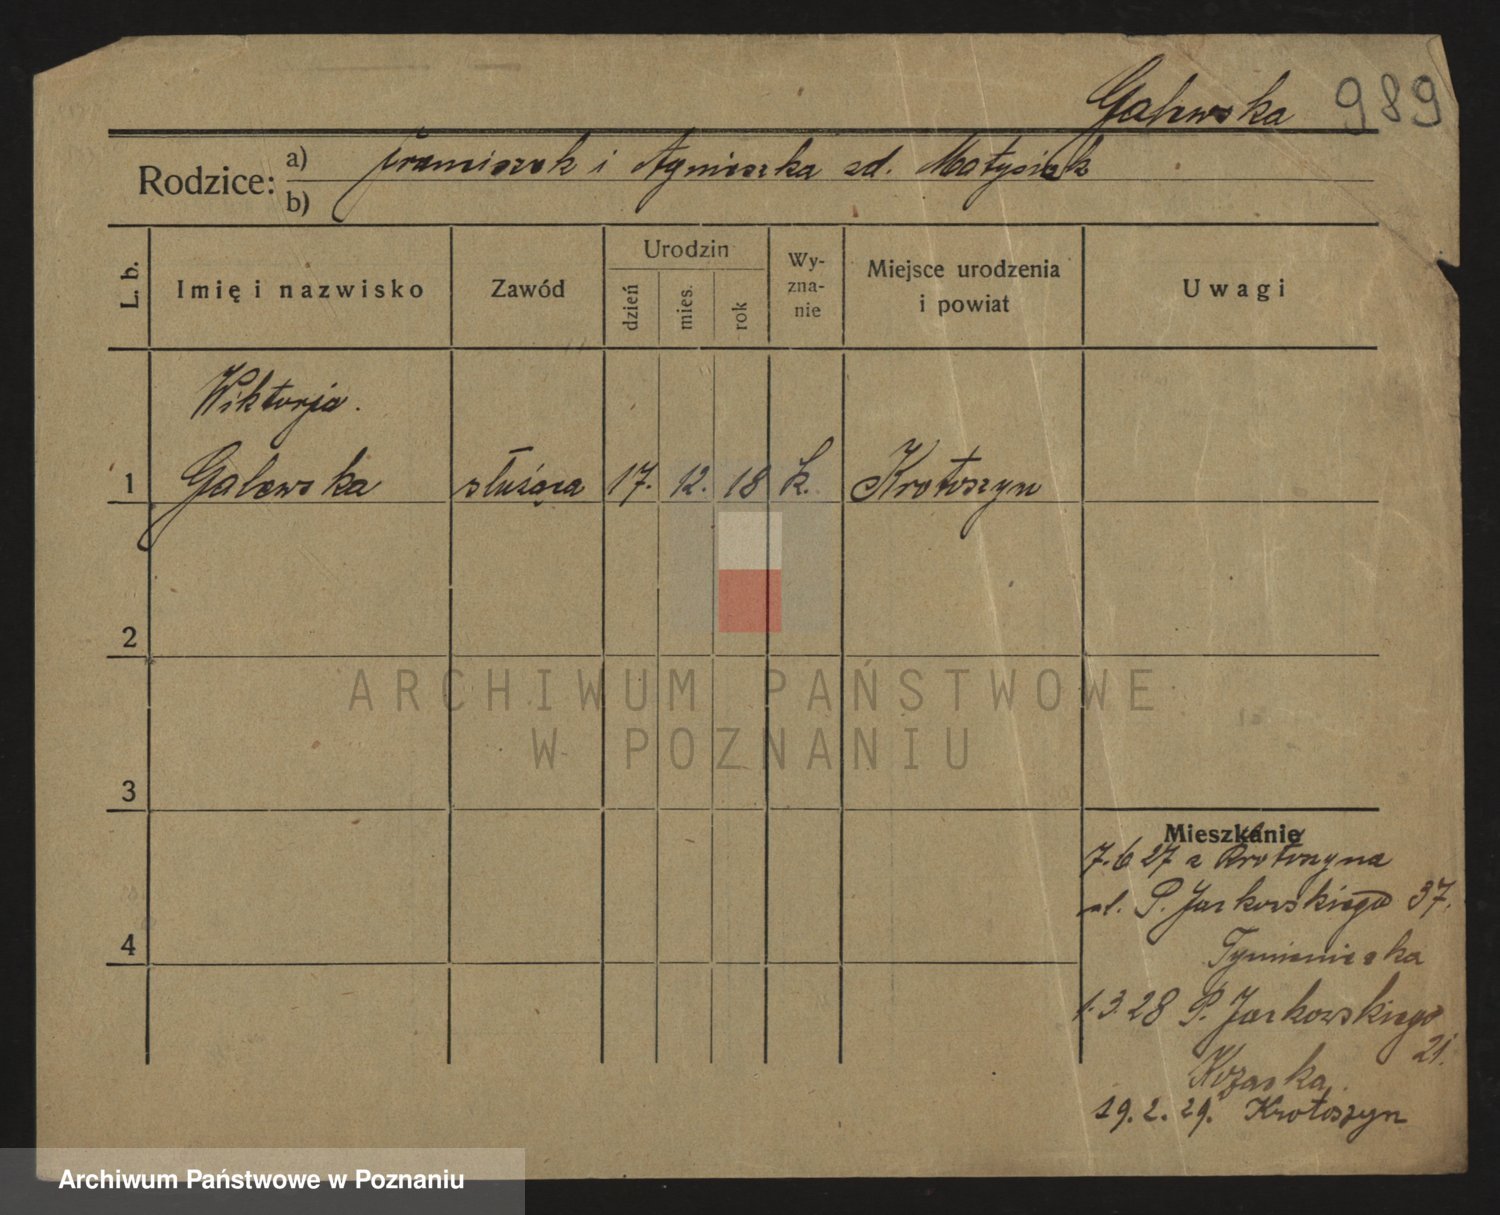 Galewska 989
Rodzice: a) Franciszek i Agnieszka zd. Matysiak
b)
L. b. Imię i nazwisko Zawód Urodzin dzień mies. rok Wy-zna-nie Miejsce urodzenia i powiat Uwagi
Wiktorja.
1 Galewska służąca 17. 12. 18 k. Krotoszyn
2
ARCHIWUM PAŃSTWOWE
W POZNANIU
3
Mieszkanie
7.6 27 z Krotoszyna
ul. P. Jackowskiego 37.
Tymieniecka
4
1.3.28 P. Jackowskiego
21.
19.2.29. Krotoszyn
Archiwum Państwowe w Poznaniu